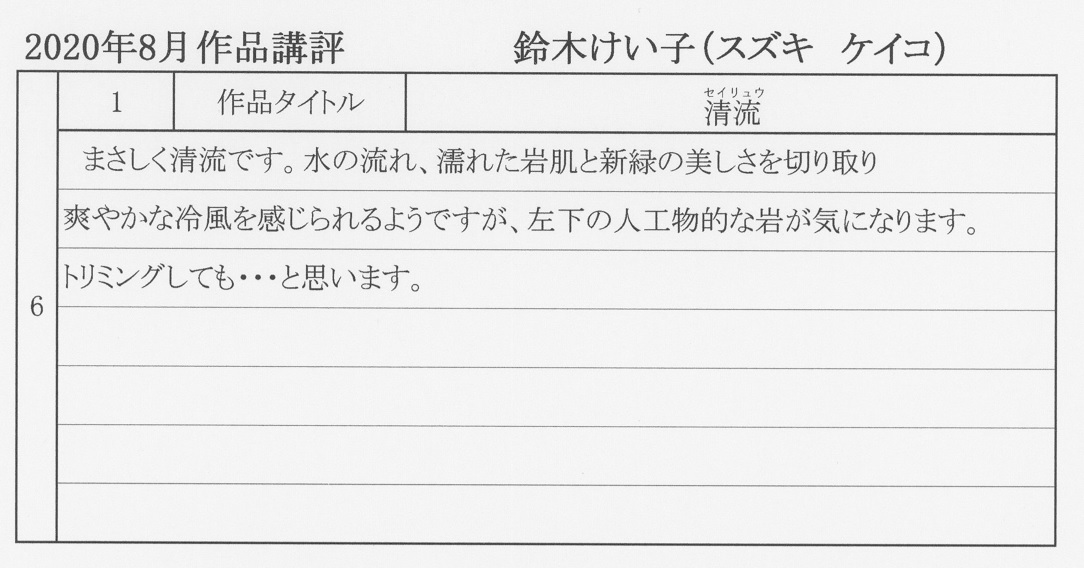 2020年8月作品講評　鈴木けい子（スズキ　ケイコ）
1　作品タイトル　清流
セイリュウ
まさしく清流です。水の流れ、濡れた岩肌と新緑の美しさを切り取り
爽やかな冷風を感じられるようですが、左下の人工物的な岩が気になります。
トリミングしても・・・と思います。
6